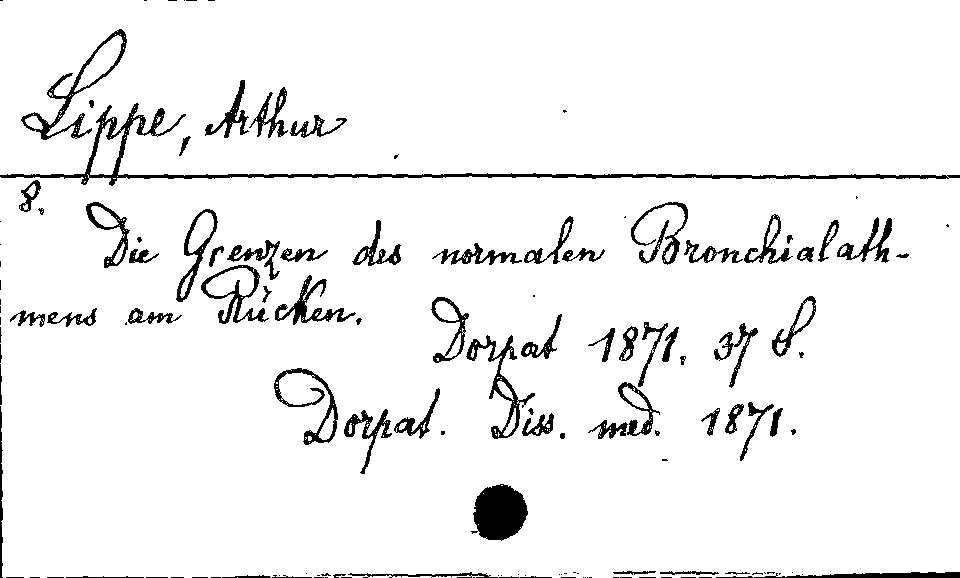 Lippe, Arthur
8.
Die Grenzen des normalen Bronchialath-
mens am Rücken.
Dorpat 1871. 37 S.
Dorpat. Diss. med. 1871.